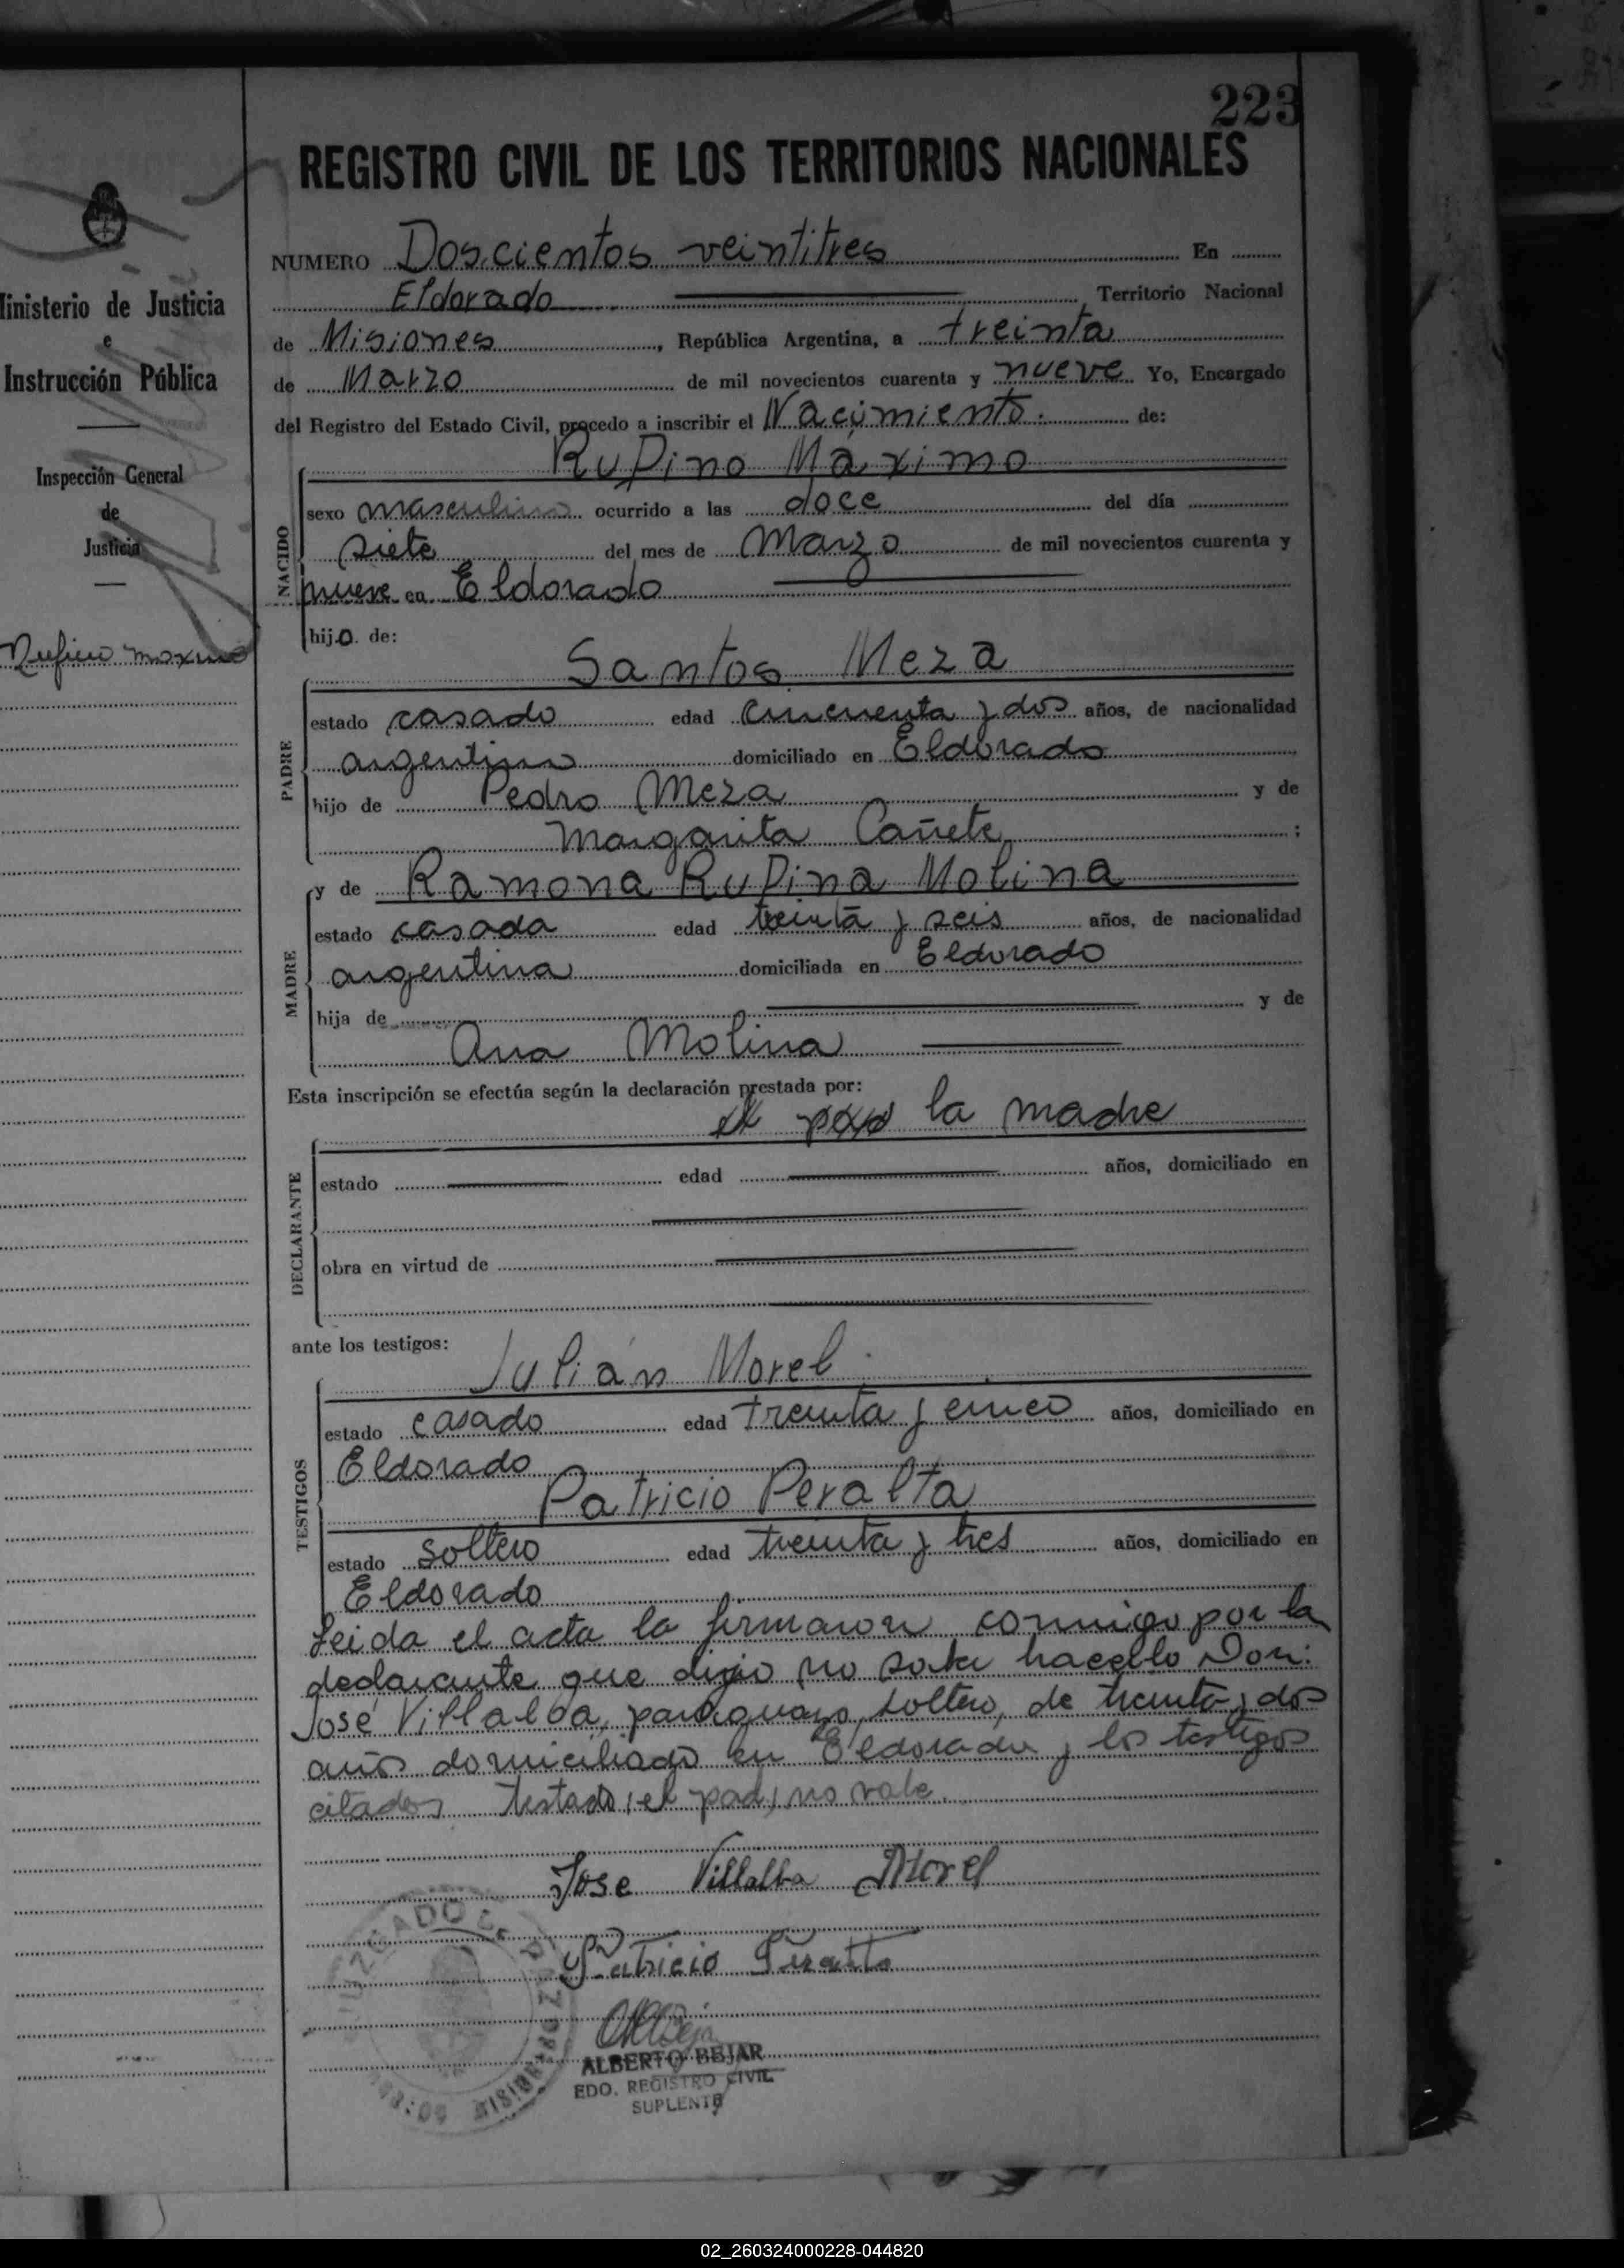 223
REGISTRO CIVIL DE LOS TERRITORIOS NACIONALES
NUMERO Doscientos veintitres En
Eldorado Territorio Nacional
de Misiones, República Argentina, a treinta
de Marzo de mil novecientos cuarenta y nueve Yo, Encargado
del Registro del Estado Civil, procedo a inscribir el Nacimiento. de:
Rufino Máximo
NACIDO
sexo masculino ocurrido a las doce del día
siete del mes de Marzo de mil novecientos cuarenta y
nueve en Eldorado
hijo de:
Santos Meza
PADRE
estado casado edad cincuenta y dos años, de nacionalidad
argentino domiciliado en Eldorado
hijo de Pedro Meza y de
Margarita Cañete;
y de Ramona Rufina Molina
MADRE
estado casada edad treinta y seis años, de nacionalidad
argentina domiciliada en Eldorado
hija de y de
Ana Molina
Esta inscripción se efectúa según la declaración prestada por:
el pad la madre
DECLARANTE
estado edad años, domiciliado en
obra en virtud de
ante los testigos:
Julián Morel
TESTIGOS
estado casado edad treinta y cinco años, domiciliado en
Eldorado
Patricio Peralta
estado soltero edad treinta y tres años, domiciliado en
Eldorado
Leida el acta la firmaron conmigo por la
declarante que dijo no saber hacerlo Don:
José Villalba, paraguayo, soltero, de treinta y dos
años domiciliado en Eldorado y los testigos
citados testado: el pad, no vale.
Jose Villalba Morel
Patricio Peralta
ALBERTO BEJAR
EDO. REGISTRO CIVIL
SUPLENTE
JUZGADO
Ministerio de Justicia
e
Instrucción Pública
Inspección General
de
Justicia
Rufino maximo
02_260324000228-044820